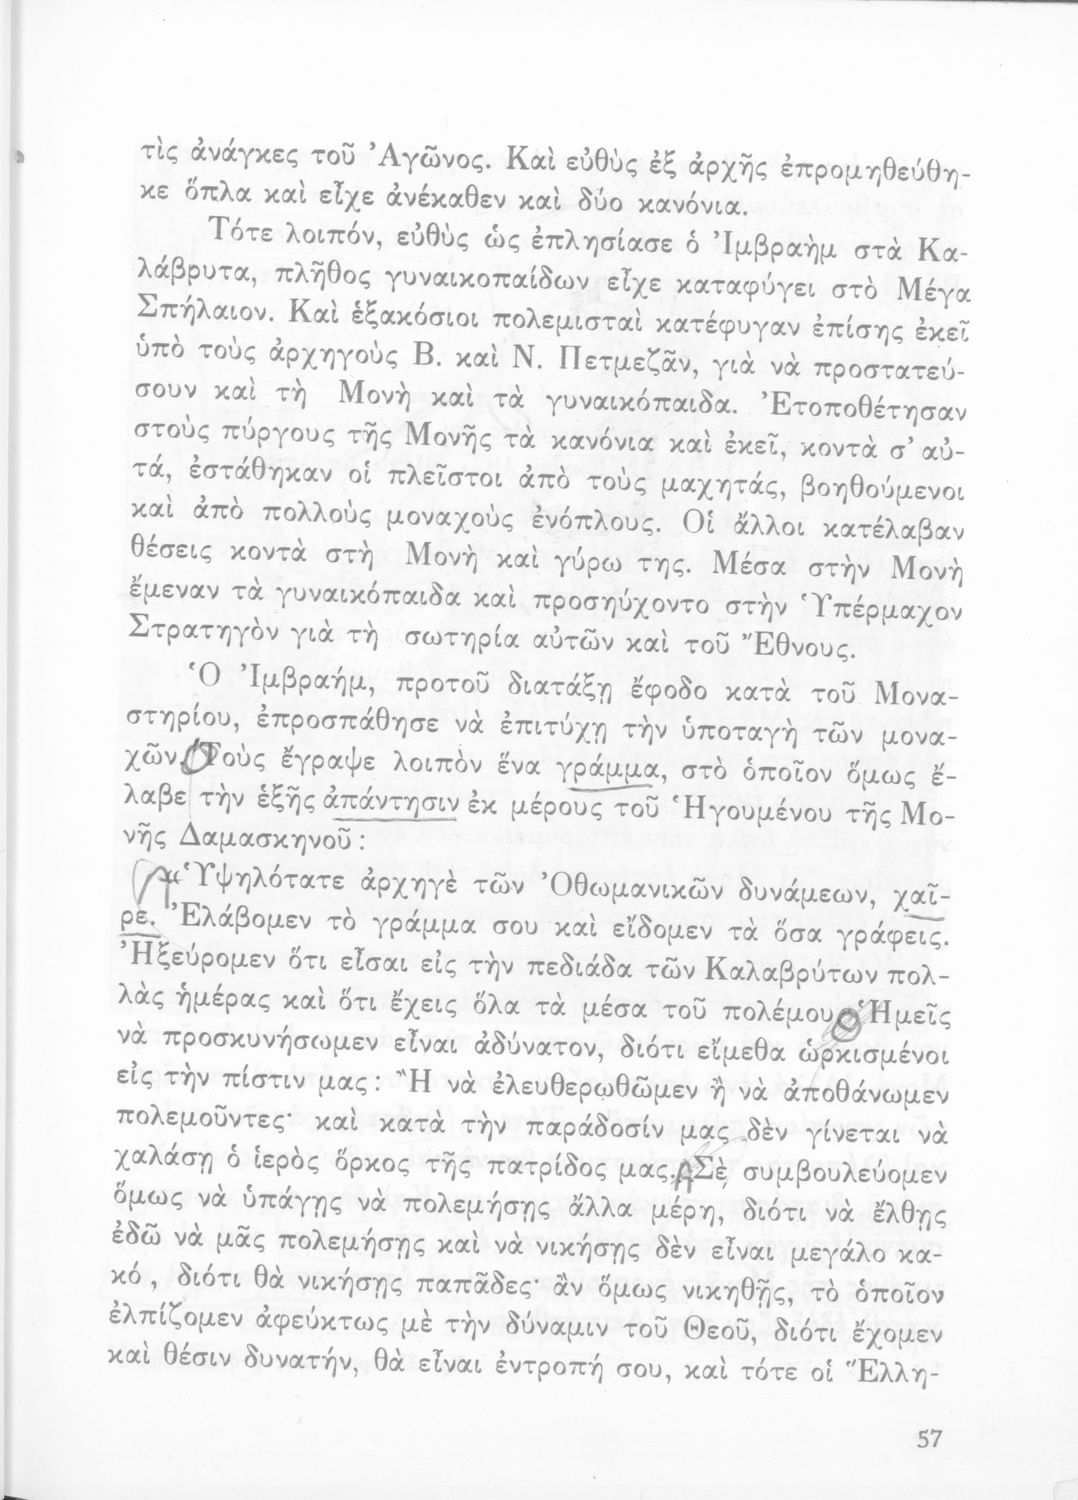 τὶς ἀνάγκες τοῦ Ἀγῶνος. Καὶ εὐθὺς ἐξ ἀρχῆς ἐπρομηθεύθη-
κε ὅπλα καὶ εἶχε ἀνέκαθεν καὶ δύο κανόνια.
Τότε λοιπόν, εὐθὺς ὡς ἐπλησίασε ὁ Ἰμβραὴμ στὰ Κα-
λάβρυτα, πλῆθος γυναικοπαίδων εἶχε καταφύγει στὸ Μέγα
Σπήλαιον. Καὶ ἑξακόσιοι πολεμισταὶ κατέφυγαν ἐπίσης ἐκεῖ
ὑπὸ τοὺς ἀρχηγοὺς Β. καὶ Ν. Πετμεζᾶν, γιὰ νὰ προστατεύ-
σουν καὶ τὴ Μονὴ καὶ τὰ γυναικόπαιδα. Ἐτοποθέτησαν
στοὺς πύργους τῆς Μονῆς τὰ κανόνια καὶ ἐκεῖ, κοντὰ σ' αὐ-
τά, ἐστάθηκαν οἱ πλεῖστοι ἀπὸ τοὺς μαχητάς, βοηθούμενοι
καὶ ἀπὸ πολλοὺς μοναχοὺς ἐνόπλους. Οἱ ἄλλοι κατέλαβαν
θέσεις κοντὰ στὴ Μονὴ καὶ γύρω της. Μέσα στὴν Μονὴ
ἔμεναν τὰ γυναικόπαιδα καὶ προσηύχοντο στὴν Ὑπέρμαχον
Στρατηγὸν γιὰ τὴ σωτηρία αὐτῶν καὶ τοῦ Ἔθνους.
Ὁ Ἰμβραήμ, προτοῦ διατάξῃ ἔφοδο κατὰ τοῦ Μονα-
στηρίου, ἐπροσπάθησε νὰ ἐπιτύχῃ τὴν ὑποταγὴ τῶν μονα-
χῶν. Τοὺς ἔγραψε λοιπὸν ἕνα γράμμα, στὸ ὁποῖον ὅμως ἔ-
λαβε τὴν ἑξῆς ἀπάντησιν ἐκ μέρους τοῦ Ἡγουμένου τῆς Μο-
νῆς Δαμασκηνοῦ:
«Ὑψηλότατε ἀρχηγὲ τῶν Ὀθωμανικῶν δυνάμεων, χαῖ-
ρε. Ἐλάβομεν τὸ γράμμα σου καὶ εἴδομεν τὰ ὅσα γράφεις.
Ἠξεύρομεν ὅτι εἶσαι εἰς τὴν πεδιάδα τῶν Καλαβρύτων πολ-
λὰς ἡμέρας καὶ ὅτι ἔχεις ὅλα τὰ μέσα τοῦ πολέμου. Ἡμεῖς
νὰ προσκυνήσωμεν εἶναι ἀδύνατον, διότι εἴμεθα ὡρκισμένοι
εἰς τὴν πίστιν μας: Ἢ νὰ ἐλευθερωθῶμεν ἢ νὰ ἀποθάνωμεν
πολεμοῦντες· καὶ κατὰ τὴν παράδοσίν μας δὲν γίνεται νὰ
χαλάσῃ ὁ ἱερὸς ὅρκος τῆς πατρίδος μας. Σὲ συμβουλεύομεν
ὅμως νὰ ὑπάγῃς νὰ πολεμήσῃς ἄλλα μέρη, διότι νὰ ἔλθῃς
ἐδῶ νὰ μᾶς πολεμήσῃς καὶ νὰ νικήσῃς δὲν εἶναι μεγάλο κα-
κό, διότι θὰ νικήσῃς παπᾶδες· ἂν ὅμως νικηθῇς, τὸ ὁποῖον
ἐλπίζομεν ἀφεύκτως μὲ τὴν δύναμιν τοῦ Θεοῦ, διότι ἔχομεν
καὶ θέσιν δυνατήν, θὰ εἶναι ἐντροπή σου, καὶ τότε οἱ Ἕλλη-
57